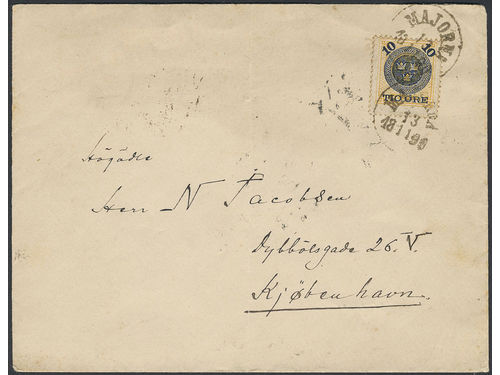 MAJORN.
10 10
TIO ÖRE
13
18 11 90
Högädle
Herr N Jacobsen
Dybbölsgade 26. V.
Kjøbenhavn.